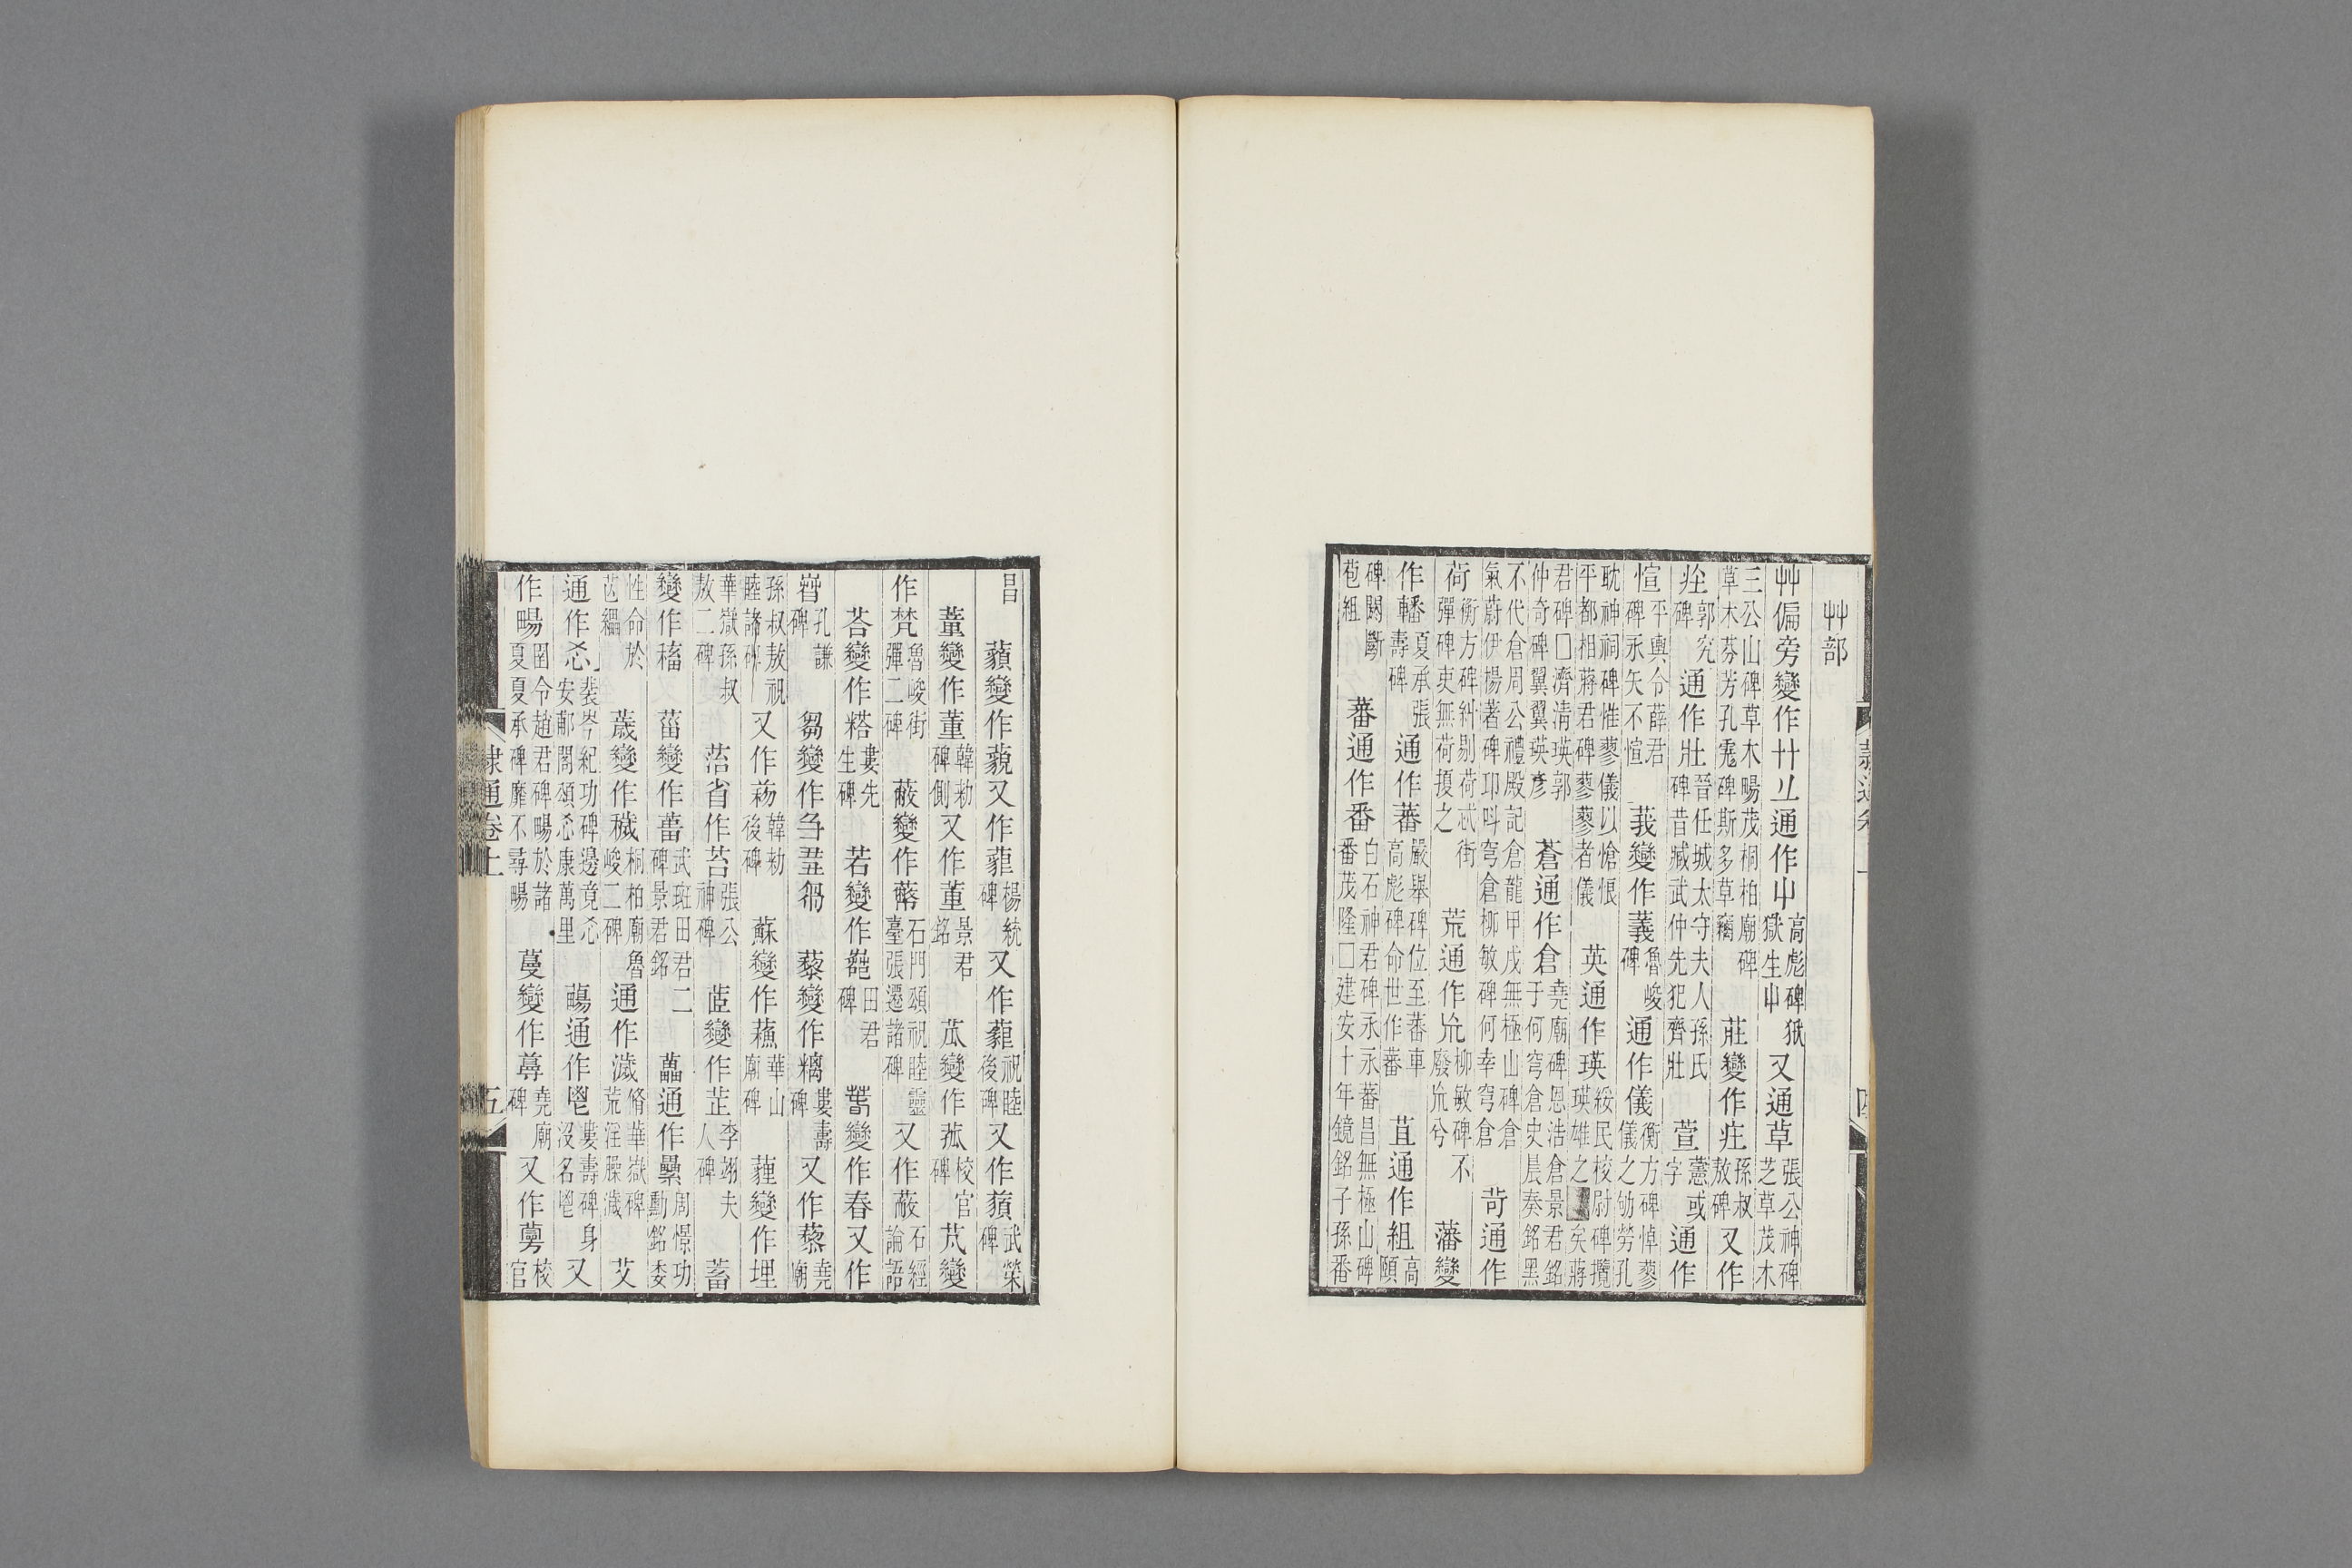 艸部
艸偏旁變作廾䒑通作屮高彪碑獄獄生屮又通草張公神碑芝草茂木
三公山碑草木暢茂桐柏廟碑草木芬芳孔宙碑斯多草竊莊變作庄孫叔敖碑又作
庄郭究碑通作壯晉任城太守夫人孫氏碑昔臧武仲先犯齊壯萱憲或字通作
愃平輿令薛君碑永矢不愃莪變作義魯峻碑通作儀衡方碑悼蓼儀之劬勞孔
耽神祠碑惟蓼儀以愴恨平都相蔣君碑蓼蓼者儀英通作瑛綏民校尉碑攬瑛雄之矣蔣
君碑□濟清瑛郭仲奇碑翼翼瑛彥蒼通作倉堯廟碑恩浩倉景君銘于何穹倉史晨奏銘黑
不代倉周公禮殿記倉龍甲戌無極山碑倉氣蔚伊楊著碑卬叫穹倉柳敏碑何幸穹倉苛通作
荷衡方碑糾剔荷忒街彈碑吏無荷擾之荒通作㡃柳敏碑不廢㡃兮藩變
作轓夏承張壽碑通作蕃嚴舉碑位至蕃車高彪碑命世作蕃苴通作組高頤
碑闕斷苞組蕃通作番白石神君碑永永蕃昌無極山碑番茂隆□建安十年鏡銘子孫番
昌
藾變作藐又作蓷楊統碑又作蘿祝睦後碑又作蘋武榮碑
蕫變作董韓勑碑側又作董景君銘苽變作菰校官碑芃變
作梵魯峻街彈二碑蔽變作蔽石門頌祝睦靈臺張遷諸碑又作蔽石經論語
荅變作嗒婁先生碑若變作䒩田君碑萅變作春又作
暜孔謙碑芻變作刍芻藜變作䊍婁壽碑又作藜堯廟
孫叔敖祝睦諸碑又作䔑韓勑後碑蘇變作蘓華山廟碑薶變作埋
華嶽孫叔敖二碑菭省作苔張公神碑茝變作芷李翊夫人碑蓄
變作稸菑變作蕾武班田君二碑景君銘藟通作纍周憬功勳銘委
性命於芭纍薉變作穢桐柏廟魯峻二碑通作濊脩華嶽碑荒淫臊濊艾
通作忞裴岑紀功碑邊竟忞安郙閣頌忞康萬里蕩通作鬯婁壽碑身沒名鬯又
作暢圉令趙君碑暢於諸夏夏承碑靡不尋暢蕁變作蕁堯廟碑又作蕁校官
隸通卷上
五